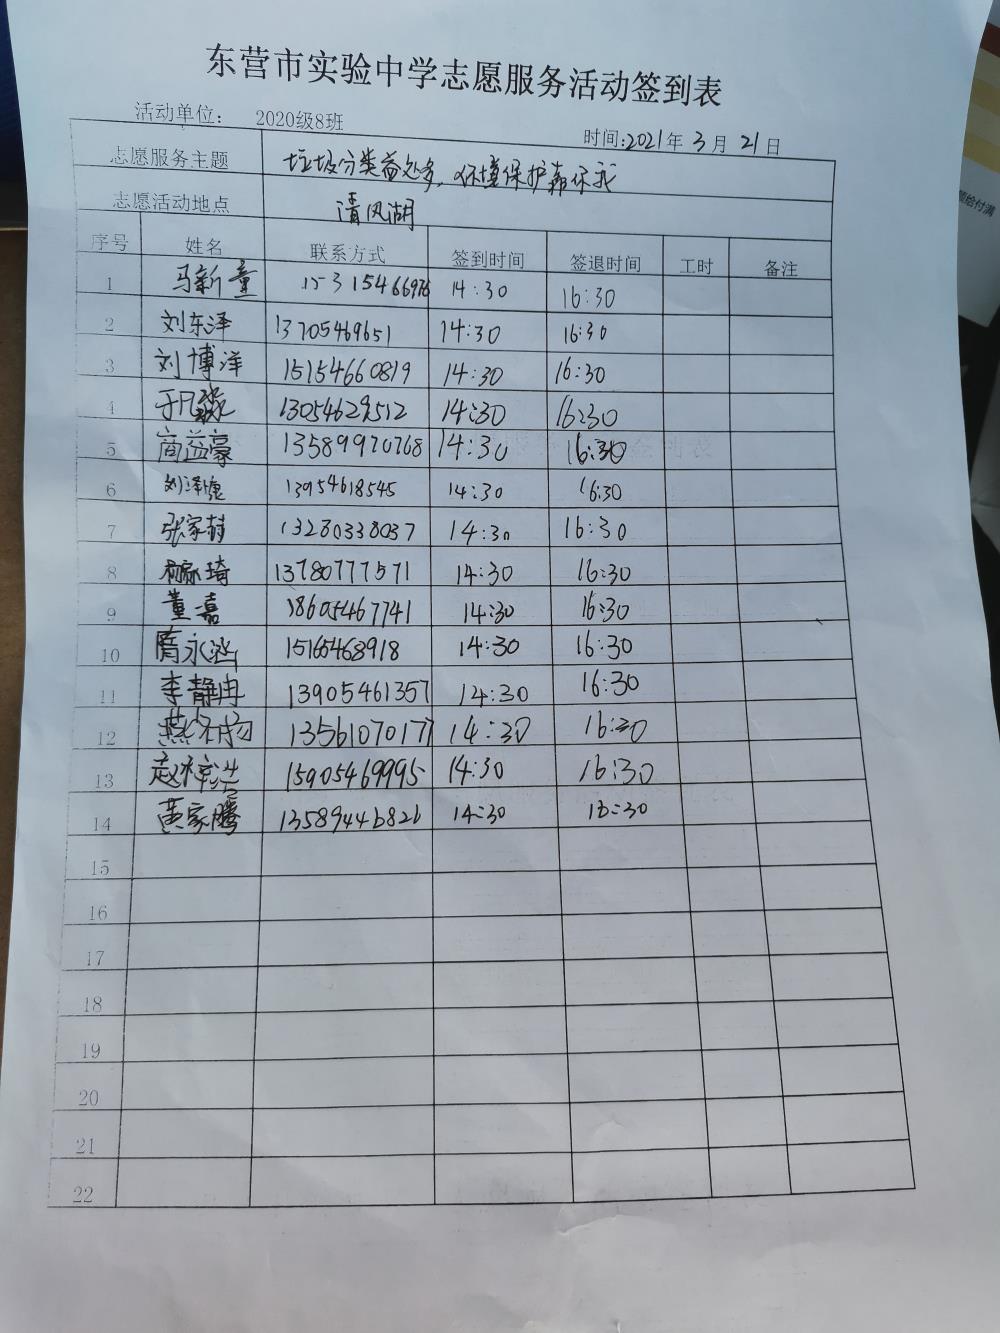 东营市实验中学志愿服务活动签到表
活动单位： 2020级8班 时间:2021年 3月 21日
志愿服务主题 垃圾分类益处多，环境保护靠你我
志愿活动地点 清风湖
序号 姓名 联系方式 签到时间 签退时间 工时 备注
1 马新童 15315466976 14:30 16:30
2 刘东泽 13705469651 14:30 16:30
3 刘博洋 15154660819 14:30 16:30
4 于凡淼 13054629512 14:30 16:30
5 商益豪 13589970768 14:30 16:30
6 刘泽 13954618545 14:30 16:30
7 张家 13280338037 14:30 16:30
8 琦 13780777571 14:30 16:30
9 董嘉 18605467741 14:30 16:30
10 隋永涵 15165468918 14:30 16:30
11 李静冉 13905461357 14:30 16:30
12 燕 13561070177 14:30 16:30
13 赵 15905469995 14:30 16:30
14 黄家腾 13589446826 14:30 16:30
15
16
17
18
19
20
21
22